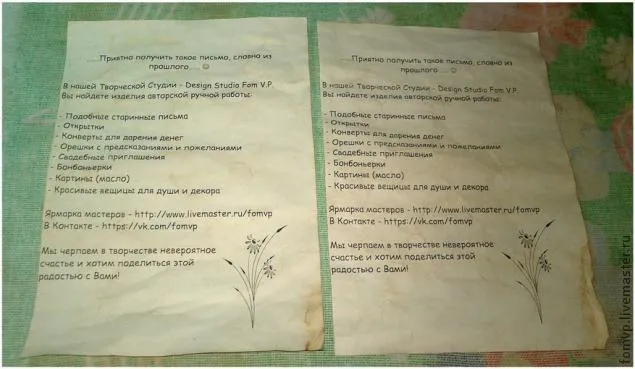 ...Приятно получить такое письмо, словно из
прошлого..... ☺
В нашей Творческой Студии - Design Studio Fom V.P.
Вы найдете изделия авторской ручной работы:
- Подобные старинные письма
- Открытки
- Конверты для дарения денег
- Орешки с предсказаниями и пожеланиями
- Свадебные приглашения
- Бонбоньерки
- Картины (масло)
- Красивые вещицы для души и декора
Ярмарка мастеров - http://www.livemaster.ru/fomvp
В Контакте - https://vk.com/fomvp
Мы черпаем в творчестве невероятное
счастье и хотим поделиться этой
радостью с Вами!
...Приятно получить такое письмо, словно из
прошлого..... ☺
В нашей Творческой Студии - Design Studio Fom V.P.
Вы найдете изделия авторской ручной работы:
- Подобные старинные письма
- Открытки
- Конверты для дарения денег
- Орешки с предсказаниями и пожеланиями
- Свадебные приглашения
- Бонбоньерки
- Картины (масло)
- Красивые вещицы для души и декора
Ярмарка мастеров - http://www.livemaster.ru/fomvp
В Контакте - https://vk.com/fomvp
Мы черпаем в творчестве невероятное
счастье и хотим поделиться этой
радостью с Вами!
fomvp.livemaster.ru